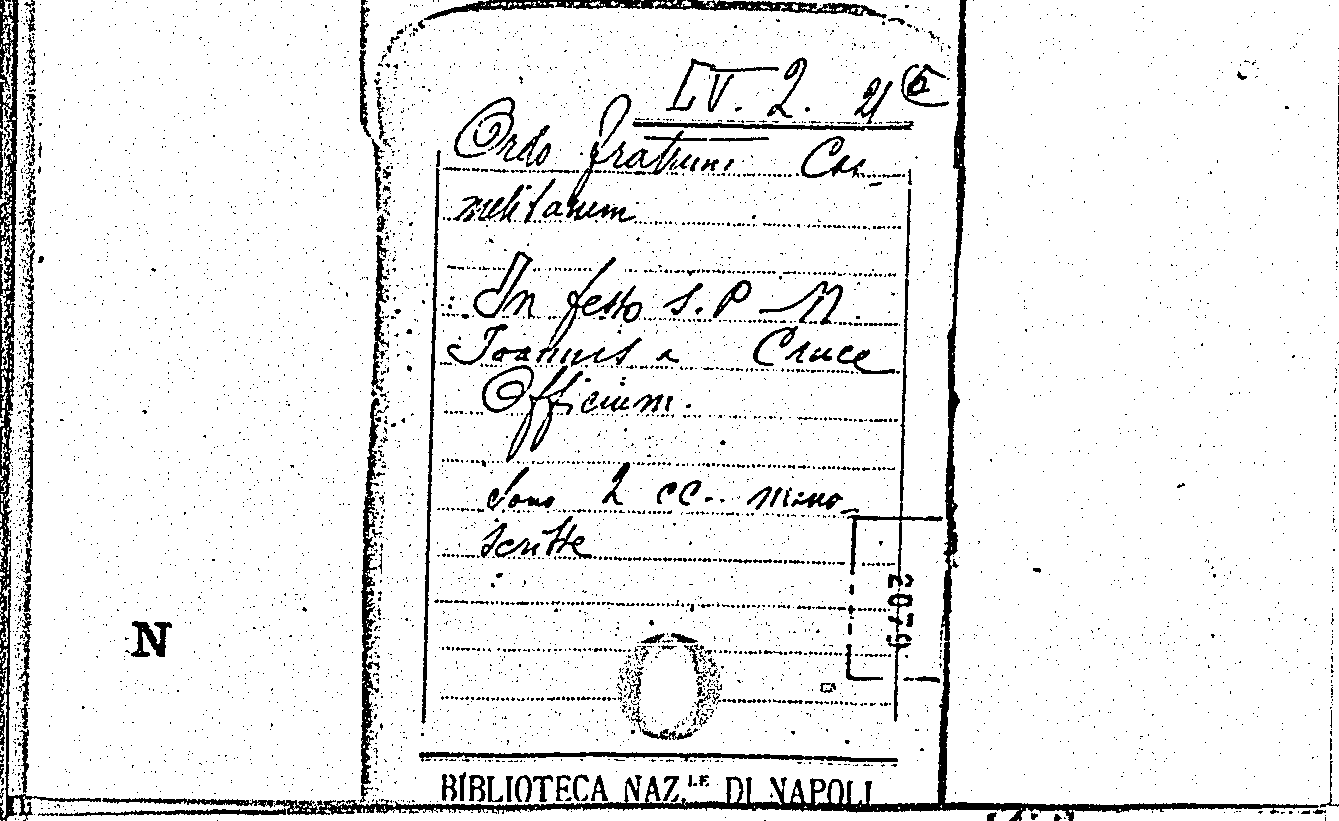 IV. 2. 21 (5
Ordo fratrum Car-
melitarum
In festo S. P. N.
Joannis a Cruce
Officium.
Sono 2 cc. mano-
scritte
2079
N
BIBLIOTECA NAZ.LE DI NAPOLI